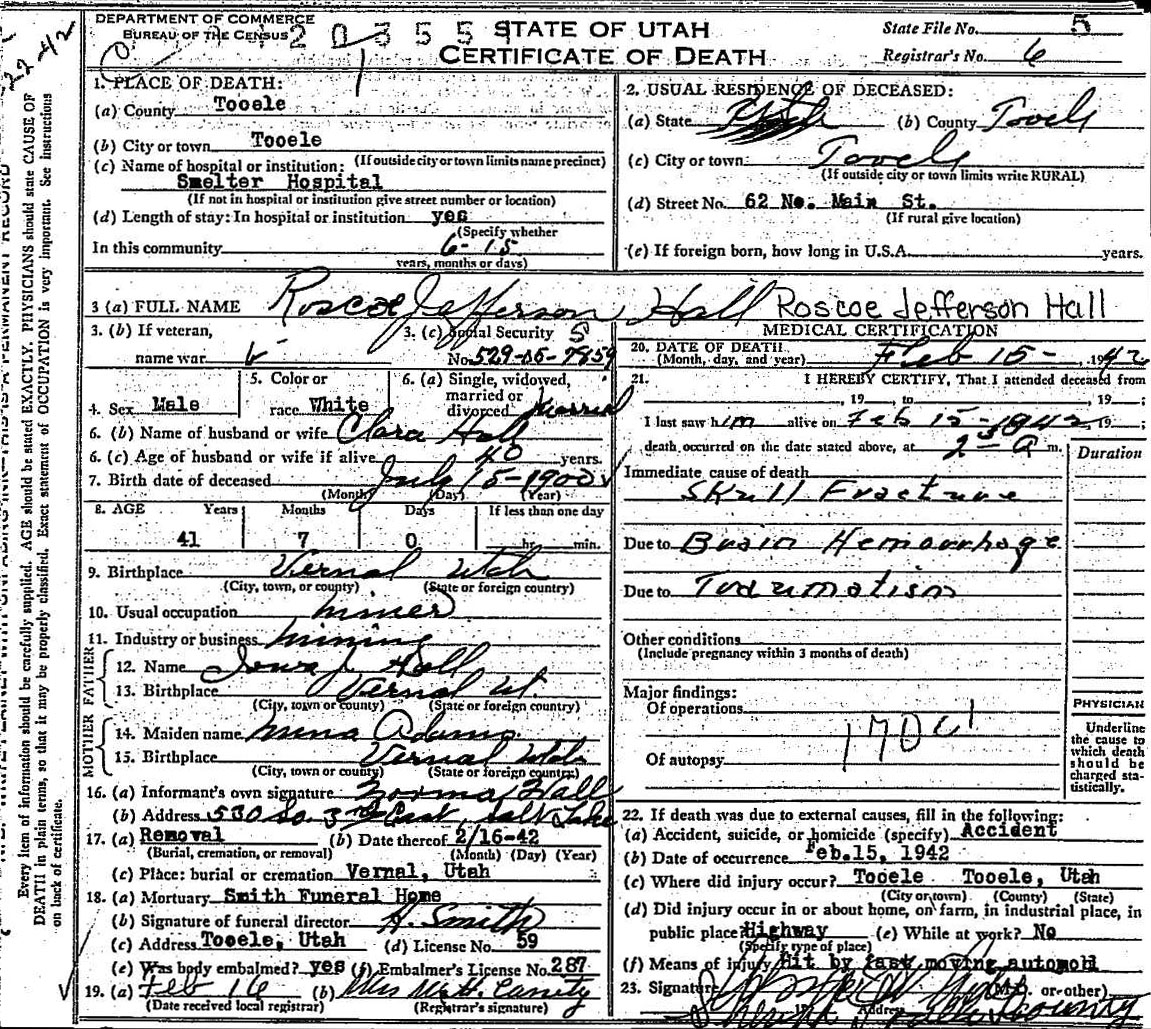 DEPARTMENT OF COMMERCE
BUREAU OF THE CENSUS
STATE OF UTAH
CERTIFICATE OF DEATH
State File No. 5
Registrar's No. 6
1. PLACE OF DEATH:
(a) County Tooele
(b) City or town Tooele
(If outside city or town limits name precinct)
(c) Name of hospital or institution:
Smelter Hospital
(If not in hospital or institution give street number or location)
(d) Length of stay: In hospital or institution yes
(Specify whether
In this community 6-15
years, months or days)
2. USUAL RESIDENCE OF DECEASED:
(a) State Utah (b) County Tooele
(c) City or town: Tooele
(If outside city or town limits write RURAL)
(d) Street No. 62 No. Main St.
(If rural give location)
(e) If foreign born, how long in U.S.A. years.
3 (a) FULL NAME Roscoe Jefferson Hall Roscoe Jefferson Hall
3. (b) If veteran,
name war
3. (c) Social Security
No. 529-05-7859
4. Sex Male
5. Color or
race White
6. (a) Single, widowed,
married or
divorced Married
6. (b) Name of husband or wife Clara Hall
6. (c) Age of husband or wife if alive 40 years.
7. Birth date of deceased July 15-1900
(Month) (Day) (Year)
8. AGE Years Months Days If less than one day
41 7 0 hr. min.
9. Birthplace Vernal Utah
(City, town, or county) (State or foreign country)
10. Usual occupation miner
11. Industry or business mining
FATHER
12. Name J Hall
13. Birthplace Vernal Ut.
(City, town or county) (State or foreign country)
MOTHER
14. Maiden name Adams
15. Birthplace Vernal Utah
(City, town or county) (State or foreign country)
16. (a) Informant's own signature Norma Hall
(b) Address 530 So. 3rd East, Salt Lake
17. (a) Removal (b) Date thereof 2/16-42
(Burial, cremation, or removal) (Month) (Day) (Year)
(c) Place: burial or cremation Vernal, Utah
18. (a) Mortuary Smith Funeral Home
(b) Signature of funeral director H. Smith
(c) Address Tooele, Utah (d) License No. 59
(e) Was body embalmed? yes (f) Embalmer's License No. 287
19. (a) Feb 16 (b) Mrs
(Date received local registrar) (Registrar's signature)
MEDICAL CERTIFICATION
20. DATE OF DEATH
(Month, day, and year) Feb 15-, 1942
21. I HEREBY CERTIFY, That I attended deceased from
, 19 , to , 19 ;
I last saw him alive on Feb 15-1942, 19 ;
death occurred on the date stated above, at a m.
Duration
Immediate cause of death
Skull Fracture
Due to Brain Hemorrhage
Due to Traumatism
Other conditions
(Include pregnancy within 3 months of death)
Major findings:
Of operations
Of autopsy
PHYSICIAN
Underline
the cause to
which death
should be
charged sta-
tistically.
22. If death was due to external causes, fill in the following:
(a) Accident, suicide, or homicide (specify) Accident
(b) Date of occurrence Feb.15, 1942
(c) Where did injury occur? Tooele Tooele, Utah
(City or town) (County) (State)
(d) Did injury occur in or about home, on farm, in industrial place, in
public place? Highway (e) While at work? No
(Specify type of place)
(f) Means of injury Hit by fast moving automobi
23. Signature (M.D. or other)
Sheriff County
Address
Every item of information should be carefully supplied. AGE should be stated EXACTLY. PHYSICIANS should state CAUSE OF
DEATH in plain terms, so that it may be properly classified. Exact statement of OCCUPATION is very important. See instructions
on back of certificate.